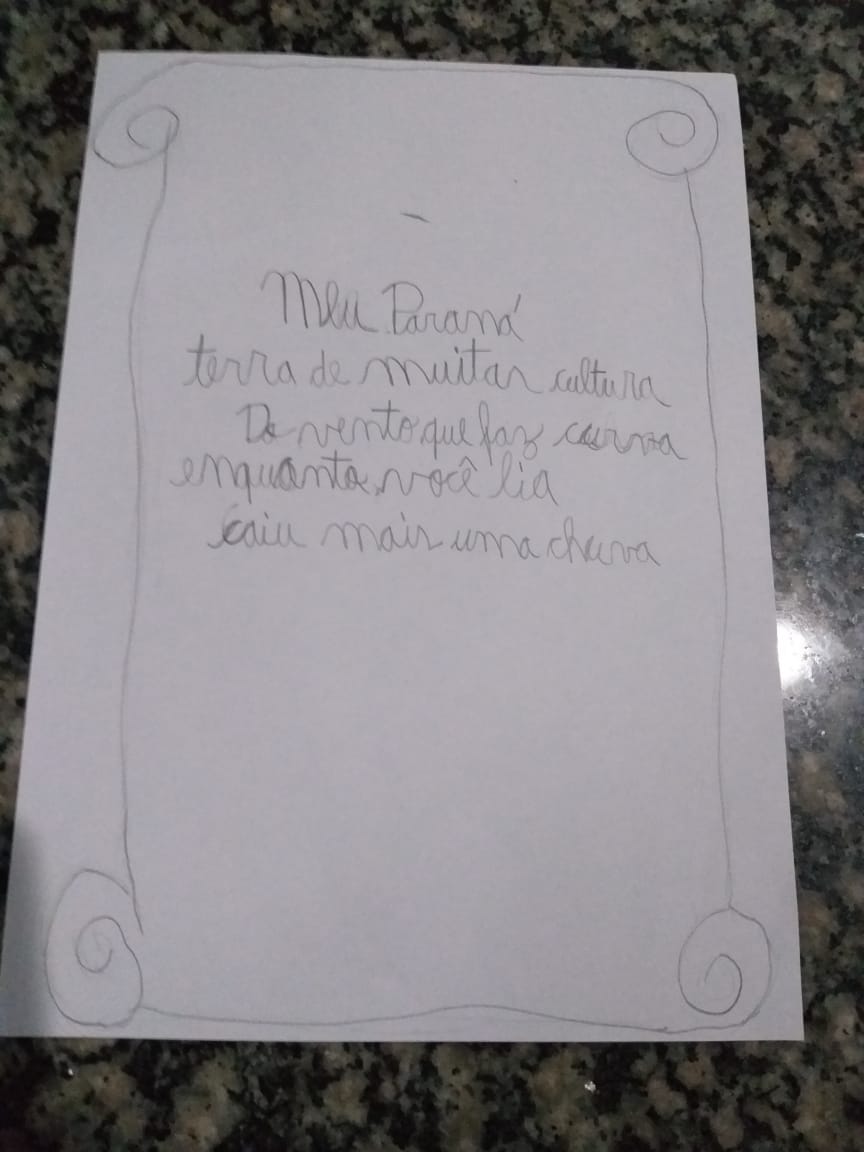 Meu Paraná
terra de muitas cultura
Do vento que faz curva
enquanto você lia
caiu mais uma chuva